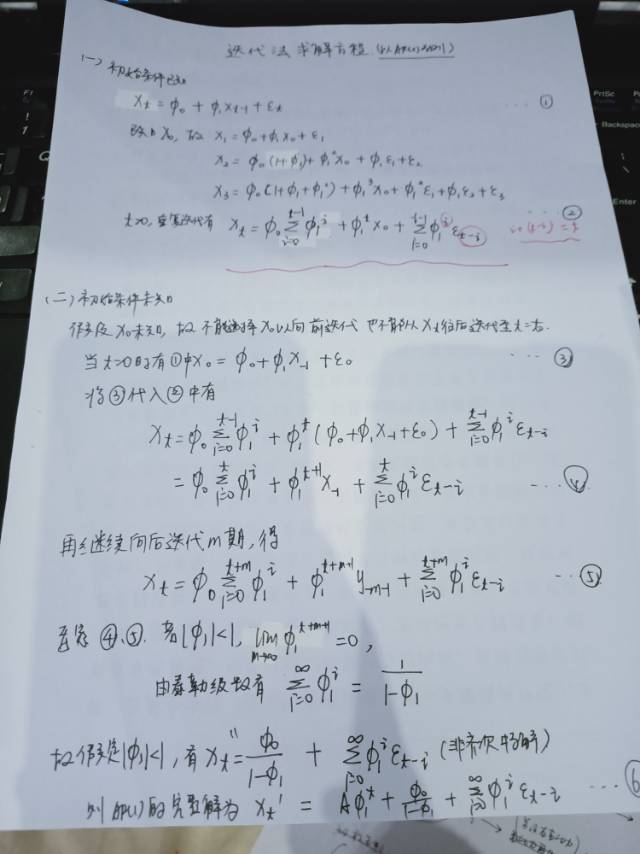 迭代法求解方程(以AR(1)为例)
(一) 初始条件已知
x_t = φ_0 + φ_1 x_{t-1} + ε_t ... ①
已知 x_0, 故 x_1 = φ_0 + φ_1 x_0 + ε_1
x_2 = φ_0 (1+φ_1) + φ_1^2 x_0 + φ_1 ε_1 + ε_2
x_3 = φ_0 (1+φ_1+φ_1^2) + φ_1^3 x_0 + φ_1^2 ε_1 + φ_1 ε_2 + ε_3
t>0, 重复迭代有 x_t = φ_0 \sum_{i=0}^{t-1} φ_1^i + φ_1^t x_0 + \sum_{i=0}^{t-1} φ_1^i ε_{t-i} ②
i+(t-i) = t
(二) 初始条件未知
假设x_0未知, 故不能选择x_0以向前迭代 也不能从x_t往后迭代至t=0.
当t=0时有①中x_0 = φ_0 + φ_1 x_{-1} + ε_0 ... ③
将③代入②中有
x_t = φ_0 \sum_{i=0}^{t-1} φ_1^i + φ_1^t (φ_0 + φ_1 x_{-1} + ε_0) + \sum_{i=0}^{t-1} φ_1^i ε_{t-i}
= φ_0 \sum_{i=0}^{t} φ_1^i + φ_1^{t+1} x_{-1} + \sum_{i=0}^{t} φ_1^i ε_{t-i} ... ④
再继续向后迭代m期, 得
x_t = φ_0 \sum_{i=0}^{t+m} φ_1^i + φ_1^{t+m+1} y_{-m-1} + \sum_{i=0}^{t+m} φ_1^i ε_{t-i} ... ⑤
④、⑤. 若|φ_1|<1, \lim_{m→∞} φ_1^{t+m+1} = 0,
由泰勒级数有 \sum_{i=0}^{∞} φ_1^i = \frac{1}{1-φ_1}
故假定|φ_1|<1, 有 x_t'' = \frac{φ_0}{1-φ_1} + \sum_{i=0}^{∞} φ_1^i ε_{t-i} (非齐次特解)
则AR(1)的完整解为 x_t' = Aφ_1^t + \frac{φ_0}{1-φ_1} + \sum_{i=0}^{∞} φ_1^i ε_{t-i} ... ⑥
F1
!
1
Q
A
PrtSc
Backspace
Enter